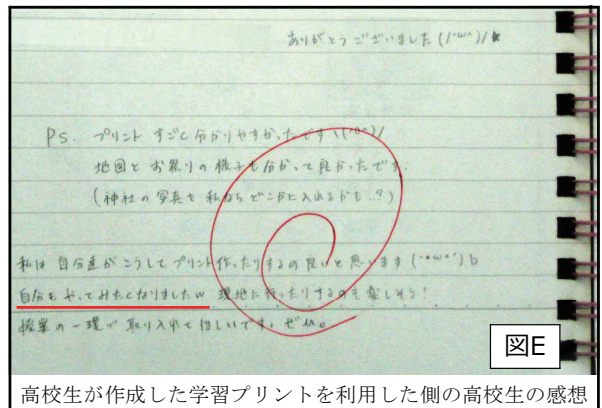 ありがとうございました(/^ω^)/★
PS. プリントすごく分かりやすかったです\(^o^)/
地図とお祭りの様子も分かって良かったです。
(神社の写真を私ならどこかに入れるかも..?)
私は自分達がこうしてプリント作ったりするの良いと思います(`・ω・´)b
自分もやってみたくなりましたw 現地に行ったりするのも楽しそう!
授業の一環で取り入れてほしいです。ぜひ。
図E
高校生が作成した学習プリントを利用した側の高校生の感想